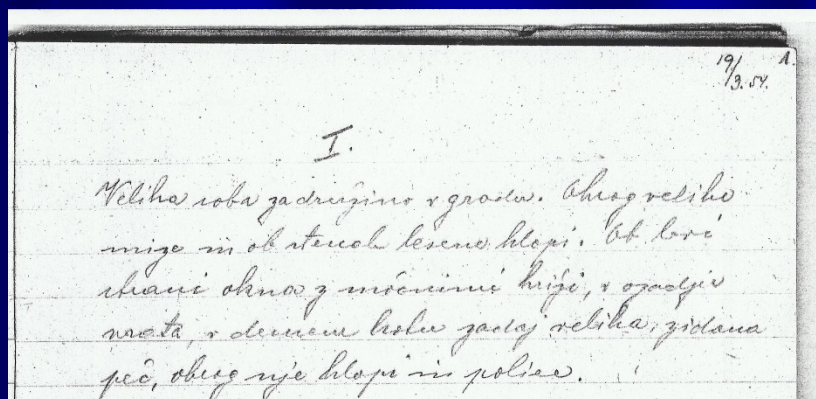 19/3. 54. 1.
I.
Velika soba za družino v gradu. Okrog velike
mize in ob stenah lesene klopi. Ob levi
strani okna z močnimi križi, v ozadju
vrata, v desnem kotu zadaj velika, zidana
peč, okrog nje klopi in police.